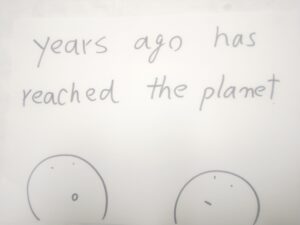 years ago has
reached the planet